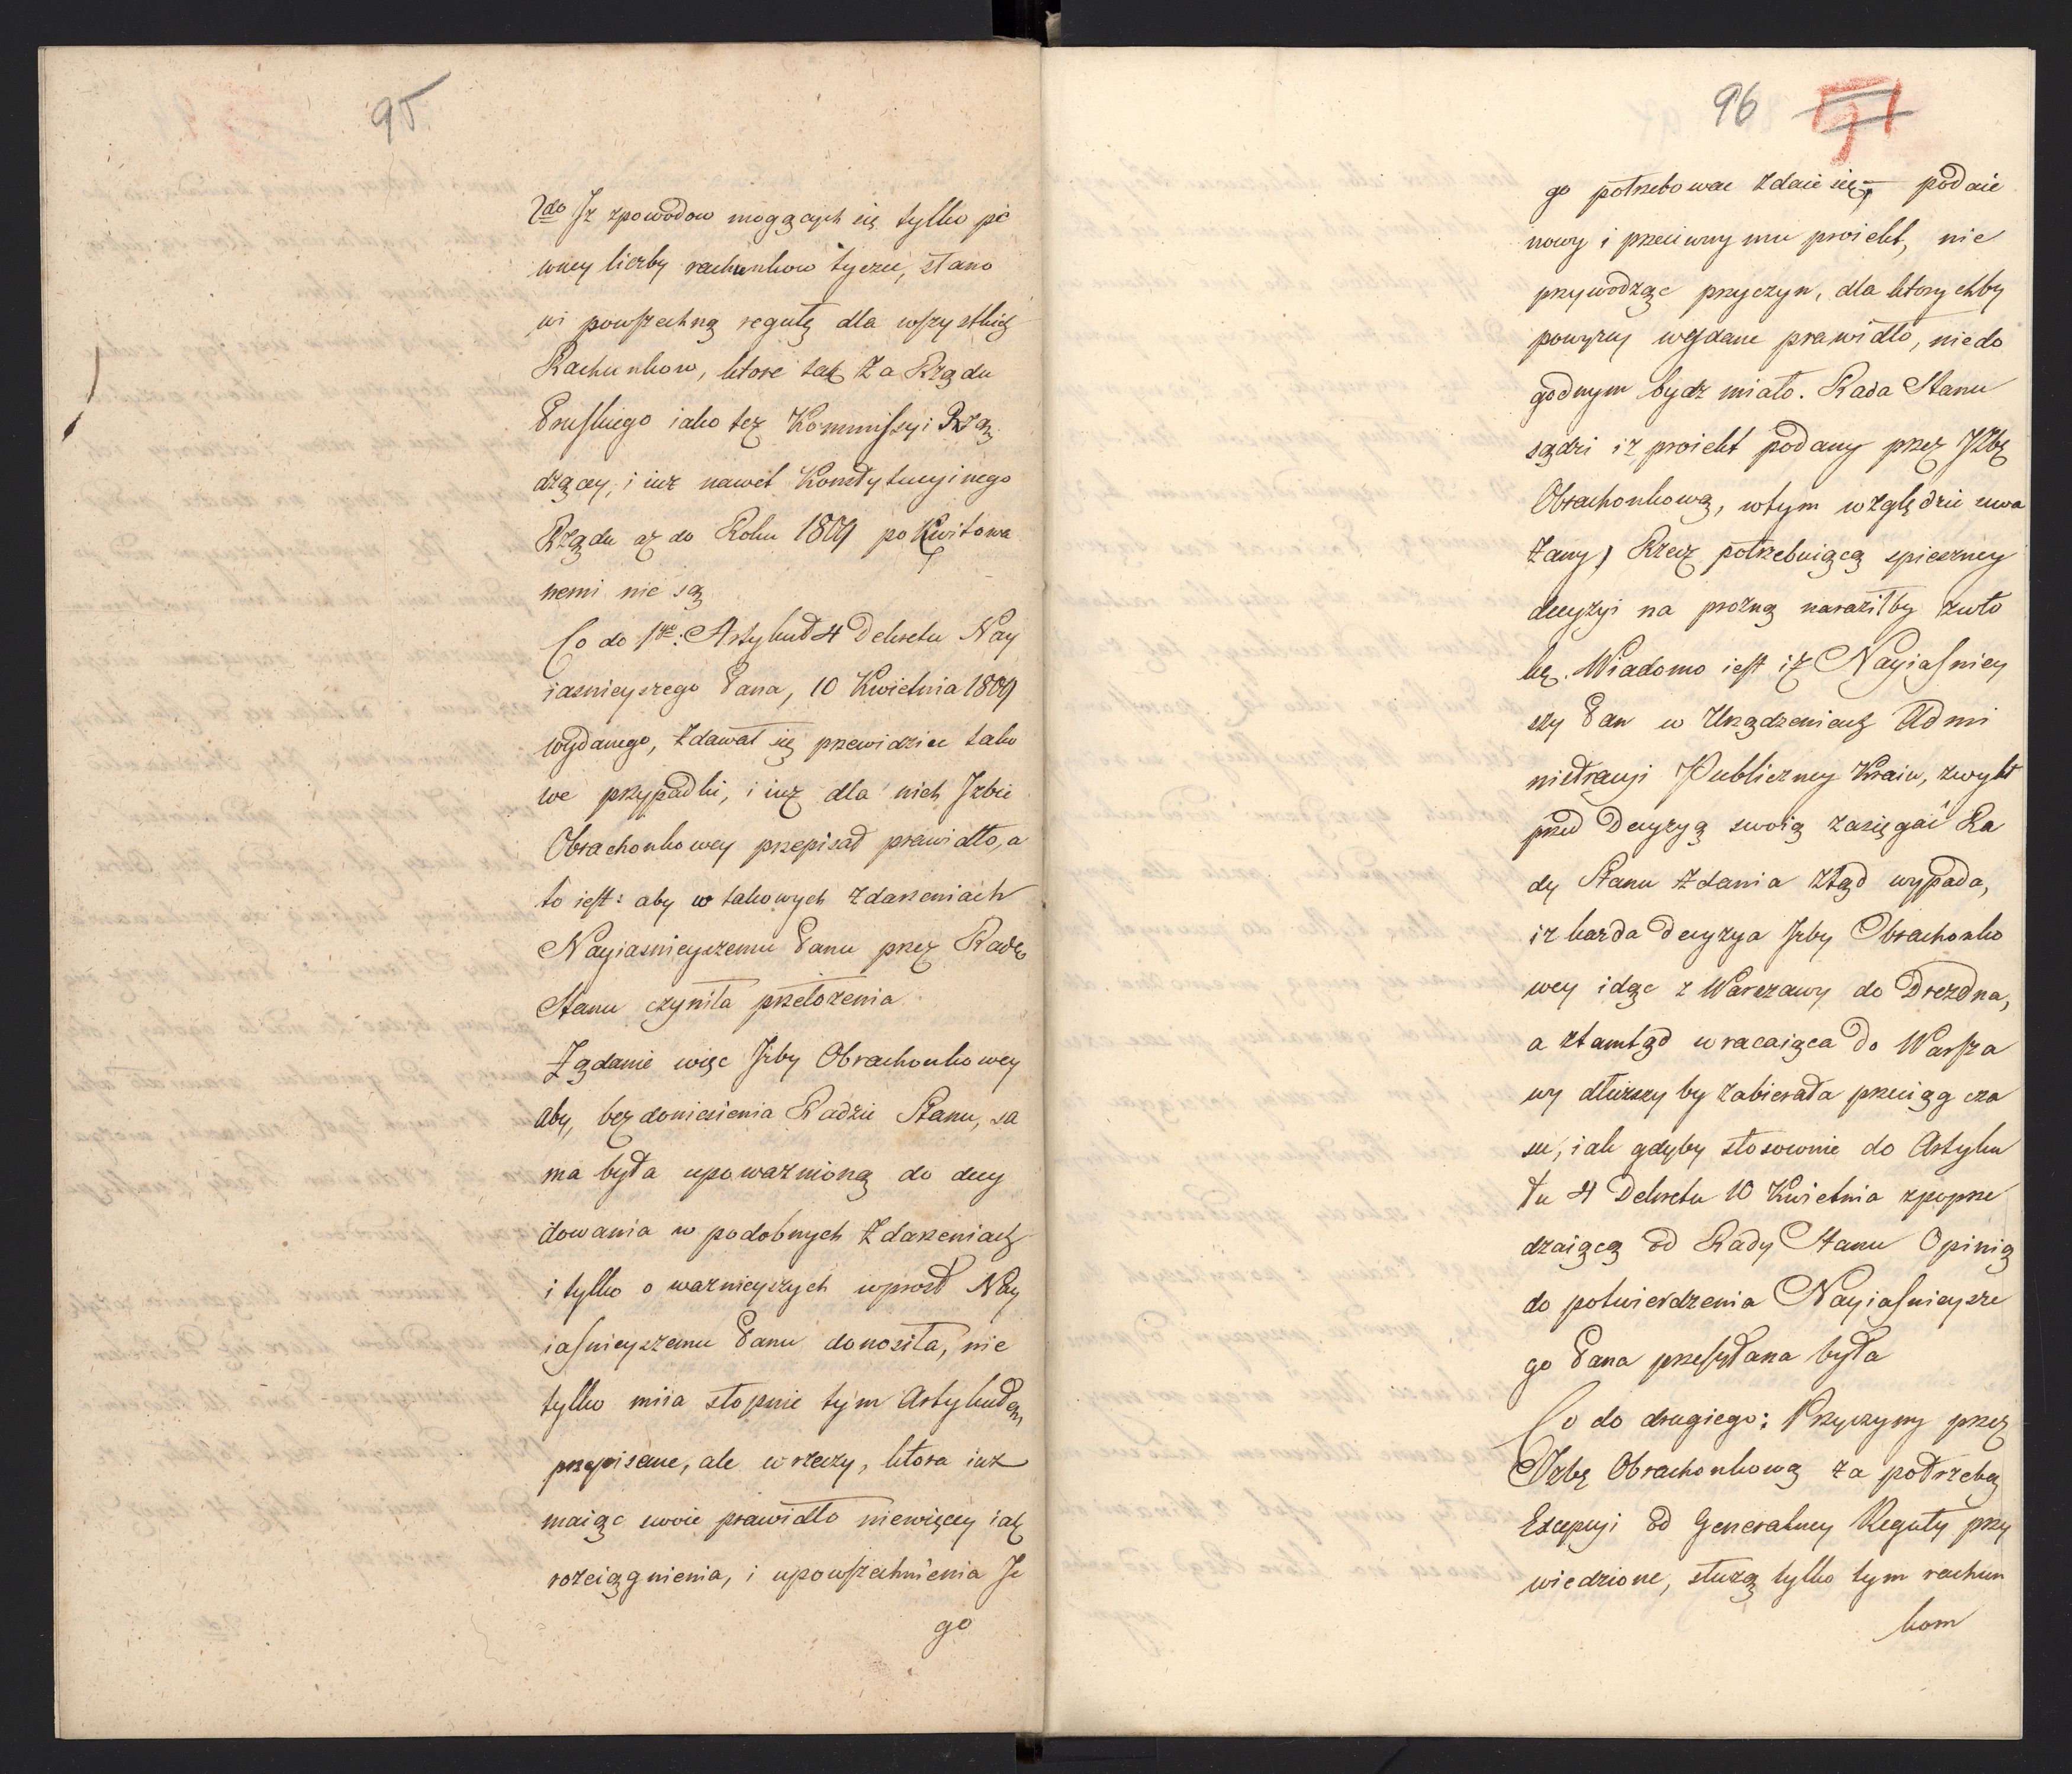 95
2do Jz zpowodow mogących się tylko pe
wney liczby rachunkow tycze, stano
wi powszechną regułę dla wszystkich
Rachunkow, ktore tak za Rządu
Pruskiego iako też Kommissyi Rzą
dzącey, i iuż nawet Konstytucyinego
Rządu aż do Roku 1809 po Kwitowa
nemi nie są
Co do 1go: Artykuł 4 Dekretu Nay
iasnieyszego Pana, 10 Kwietnia 1809
wydanego, zdawał się przewidziec tako
we przypadki, i iuż dla nich Jzbie
Obrachonkowey przepisał prawidło, a
to iest: aby w takowych zdarzeniach
Nayiasnieyszemu Panu przez Radę
Stanu czyniła przełożenia
Żądanie więc Jzby Obrachonkowey
aby, bez doniesienia Radzie Stanu, sa
ma była upoważnioną do decy
dowania w podobnych zdarzeniach
i tylko o ważnieyszych wprost Nay
iasnieyszemu Panu donosiła, nie
tylko miia stopnie tym Artykułem
przepisane, ale w rzeczy, ktora iuż
maiąc swoie prawidło niewięcey iak
rozciągnienia, i upowszechnienia Je
go
96 91
go potrzebowac zdaie się, podaie
nowy i przeciwny mu proiekt, nie
przywodząc przyczyn, dla ktorychby
powyzey wydane prawidło, niedo
godnym bydz miało. Rada Stanu
sądzi iz proiekt podany przez Jzbę
Obrachonkową, wtym względzie uwa
żany, Rzecz potrzebuiącą spieszney
decyzyi na prozną naraziłby zwło
kę. Wiadomo iest iż Nayiasniey
szy Pan w Urządzeniach Admi
nistracyi Publiczney Kraiu, zwykł
przed Decyzyą swoią zasięgać Ra
dy Stanu zdania ztąd wypada,
iz kazda decyzya Jzby Obrachonko
wey idąc z Warszawy do Drezdna,
a ztamtąd wracaiąca do Warsza
wy dłuższy by zabierała przeciąg cza
su, iak gdyby stosownie do Artyku
łu 4 Dekretu 10 Kwietnia zpoprze
dzaiącą od Rady Stanu Opinią
do potwierdzenia Nayiasnieysze
go Pana przesyłana była
Co do drugiego: Przyczyny przez
Jzbę Obrachonkową za potrzebą
Excepcyi od Generalney Reguły przy
wiedzione, służą tylko tym rachun
kom